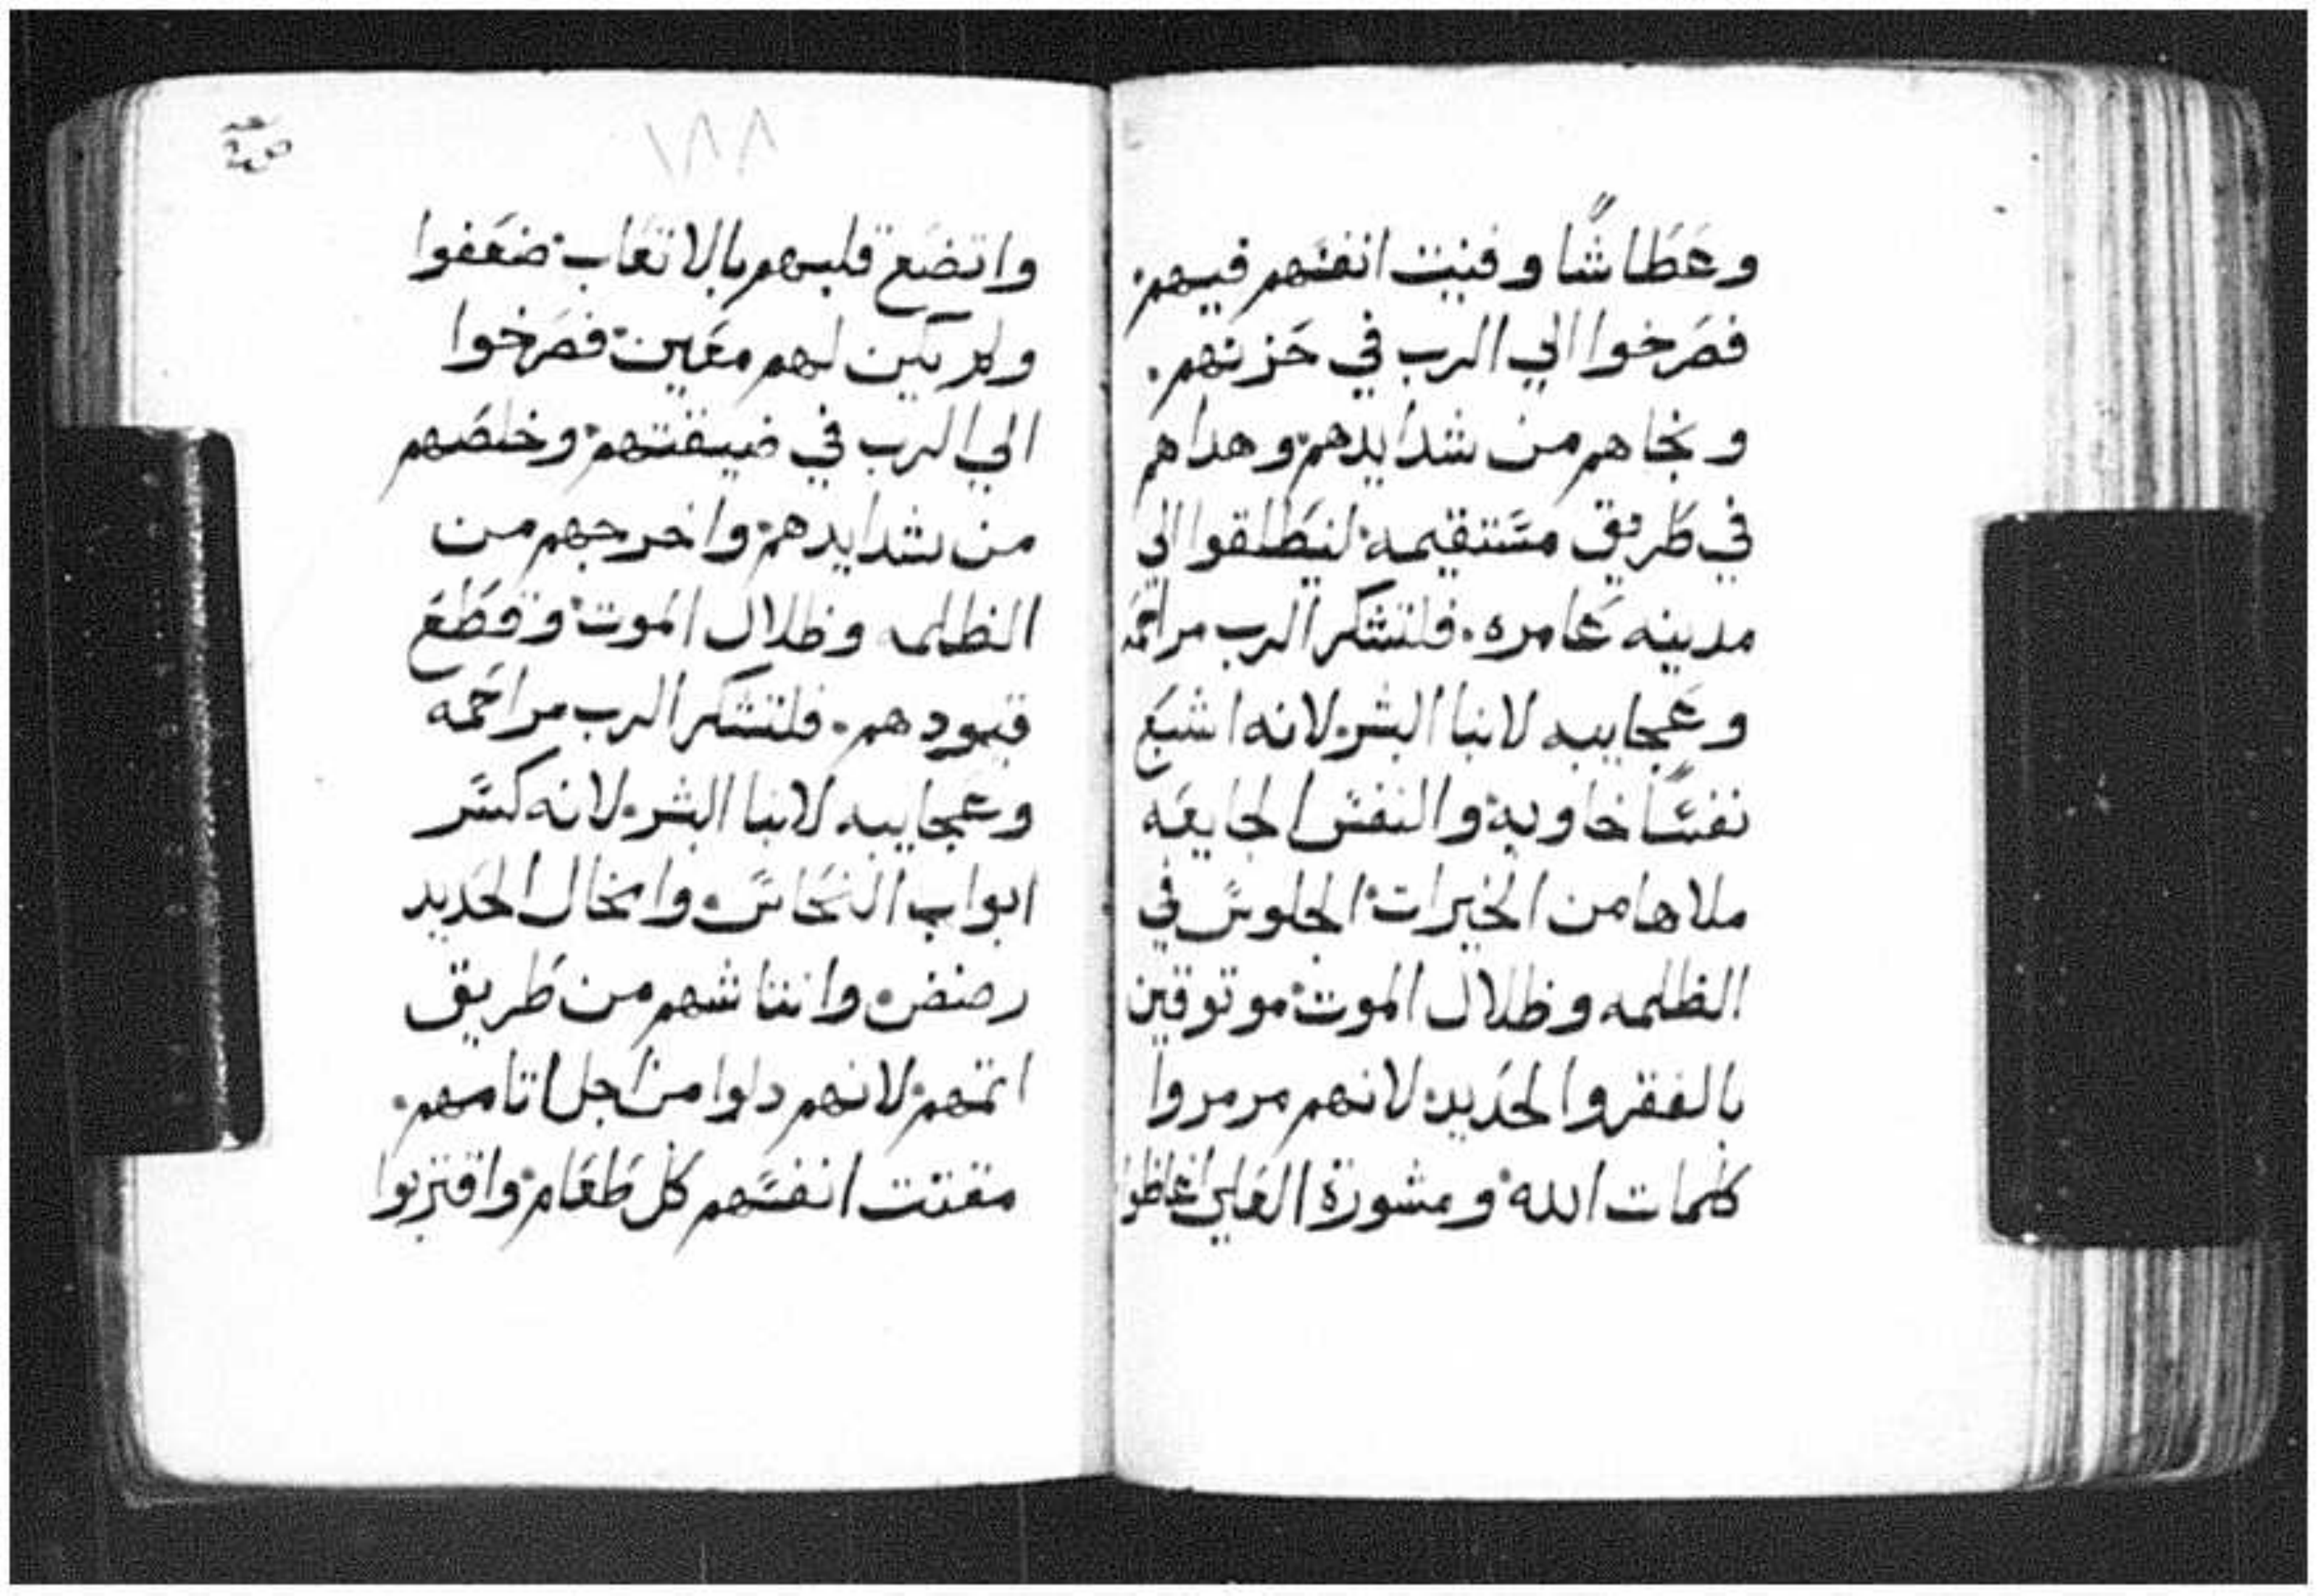 وعطاشًا وفنيت انفسهم فيهم.
فصرخوا الي الرب في حزنهم.
ونجاهم من شدايدهم. وهداهم
في طريق مستقيمه. لينطلقوا الي
مدينه عامره. فلتشكر الرب مراحمه
وعجايبه لابنا البشر. لانه اشبع
نفسًا خاويه. والنفس الجايعه
ملاها من الخيرات. الجلوس في
الظلمه وظلال الموت. موتوقين
بالفقر والحديد. لانهم مرمروا
كلمات الله. ومشورة العلي اغاظوا
١٨٨
واتضع قلبهم بالاتعاب. ضعفوا
ولم يكين لهم معين. فصرخوا
الي الرب في ضيقتهم. وخلصهم
من شدايدهم. واخرجهم من
الظلمه وظلال الموت. وقطع
قيودهم. فلتشكر الرب مراحمه
وعجايبه لابنا البشر. لانه كسر
ابواب النحاس. وامخال الحديد
رضض. وانتاشهم من طريق
اتمهم. لانهم دلوا من اجل اتامهم.
مقتت انفسهم كل طعام. واقتربوا